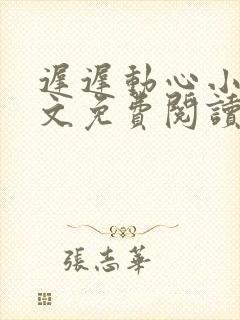 遲遲動心小
文免費閱讀
張志華